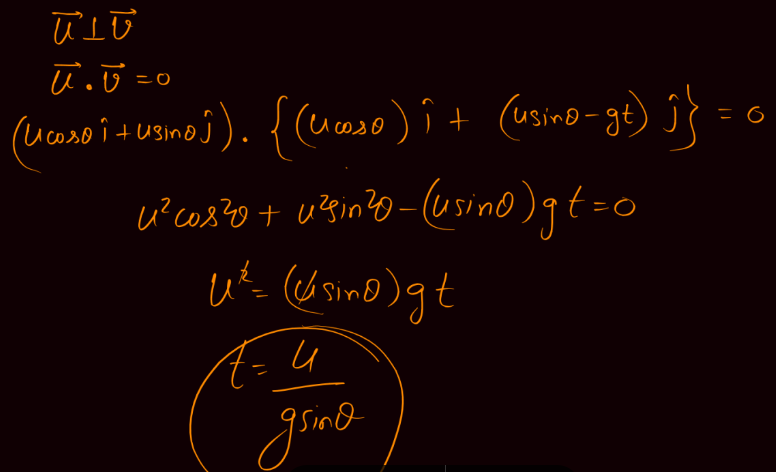 u⃗ ⊥ v⃗
u⃗ . v⃗ = 0
(ucosθ î + usinθ ĵ) . {(ucosθ) î + (usinθ - gt) ĵ} = 0
u² cos²θ + u² sin²θ - (usinθ) g t = 0
u² = (usinθ) g t
t = u / gsinθ